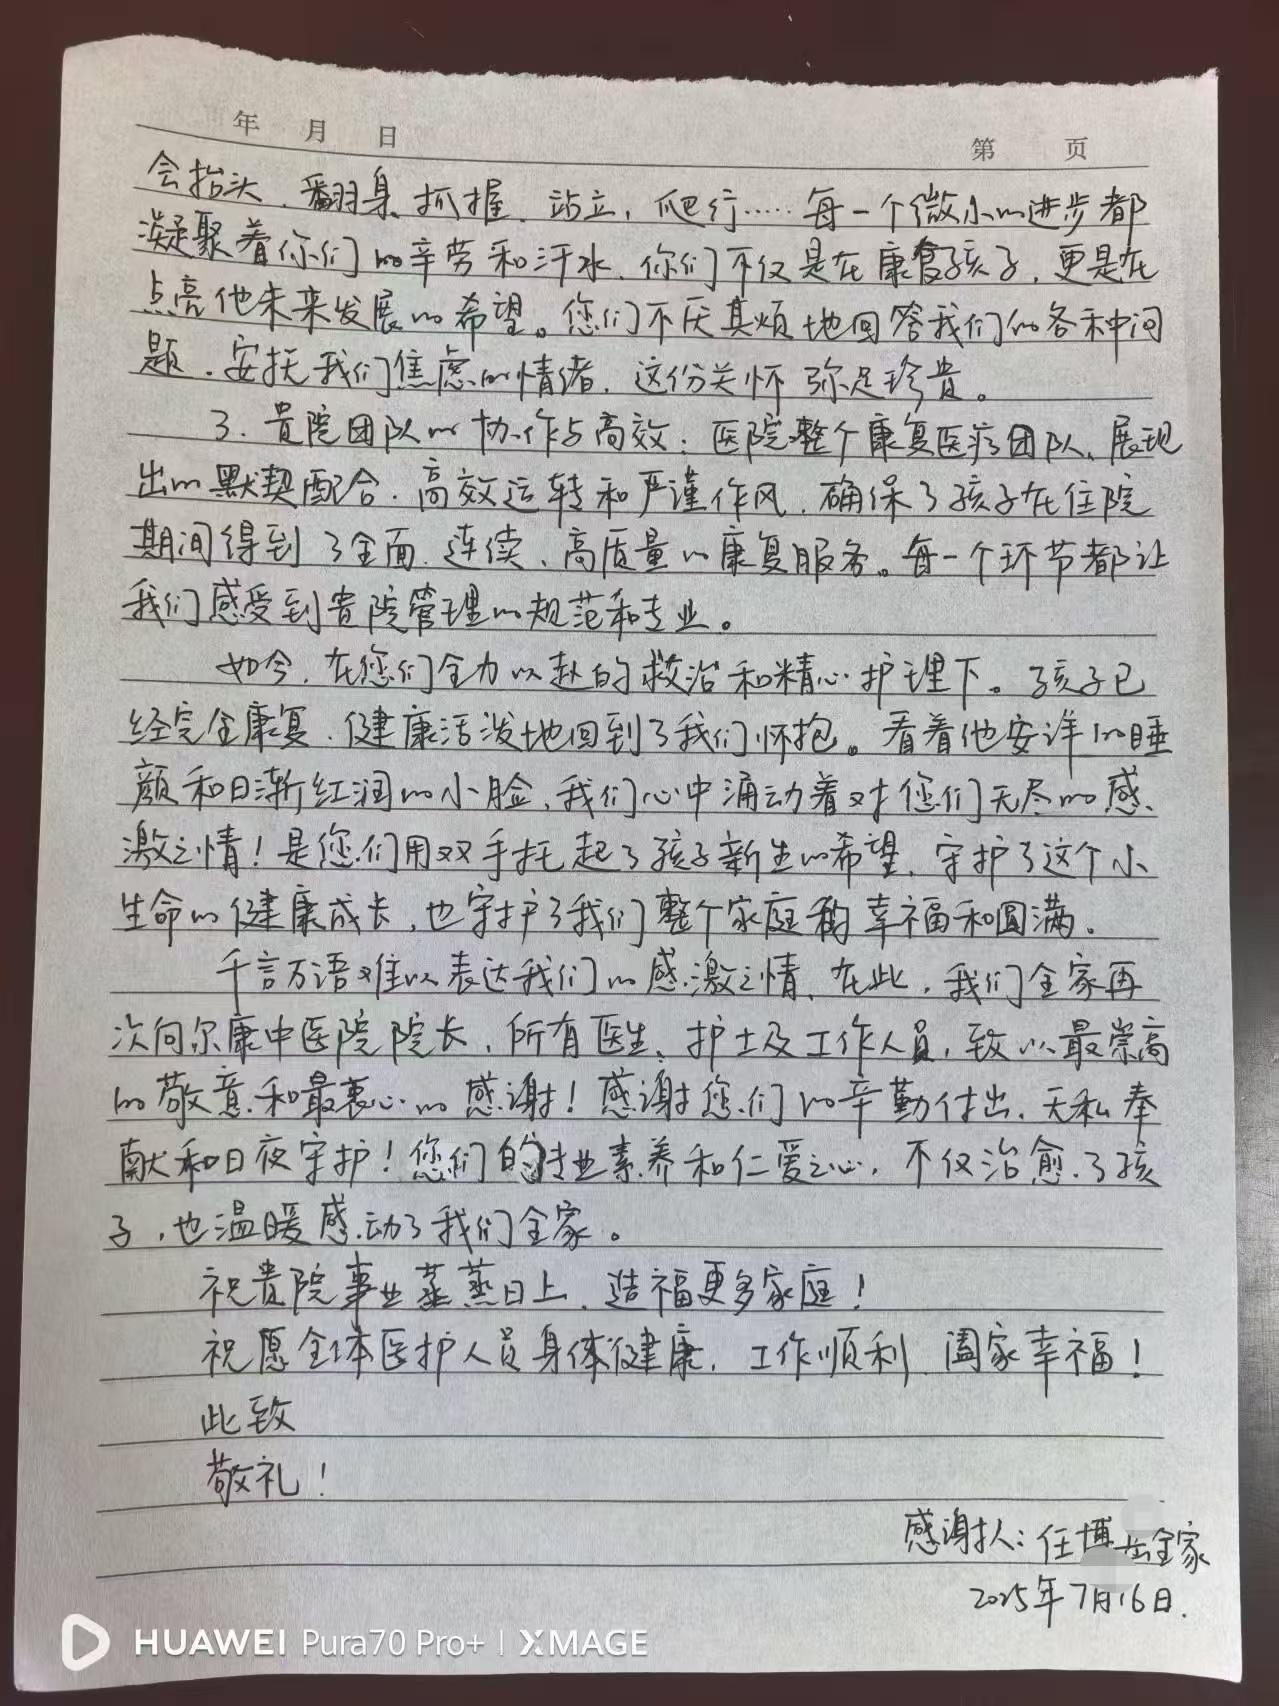 年 月 日 第 页
会抬头、翻身、抓握、站立、爬行……每一个微小的进步都
凝聚着你们的辛劳和汗水,你们不仅是在康复孩子,更是在
点亮他未来发展的希望。您们不厌其烦地回答我们的各种问
题,安抚我们焦虑的情绪,这份关怀弥足珍贵。
3. 贵院团队的协作与高效:医院整个康复医疗团队、展现
出的默契配合、高效运转和严谨作风,确保了孩子在住院
期间得到了全面、连续、高质量的康复服务。每一个环节都让
我们感受到贵院管理的规范和专业。
如今,在您们全力以赴的救治和精心护理下。孩子已
经完全康复,健康活泼地回到了我们怀抱。看着他安详的睡
颜和日渐红润的小脸,我们心中涌动着对您们无尽的感
激之情!是您们用双手托起了孩子新生的希望,守护了这个小
生命的健康成长,也守护了我们整个家庭的幸福和圆满。
千言万语难以表达我们的感激之情,在此,我们全家再
次向尔康中医院院长,所有医生、护士及工作人员,致以最崇高
的敬意和最衷心的感谢!感谢您们的辛勤付出、无私奉
献和日夜守护!您们的专业素养和仁爱之心,不仅治愈了孩
子,也温暖感动了我们全家。
祝贵院事业蒸蒸日上,造福更多家庭!
祝愿全体医护人员身体健康,工作顺利,阖家幸福!
此致
敬礼!
感谢人:任博 全家
2025年7月16日.
HUAWEI Pura70 Pro+ | XMAGE